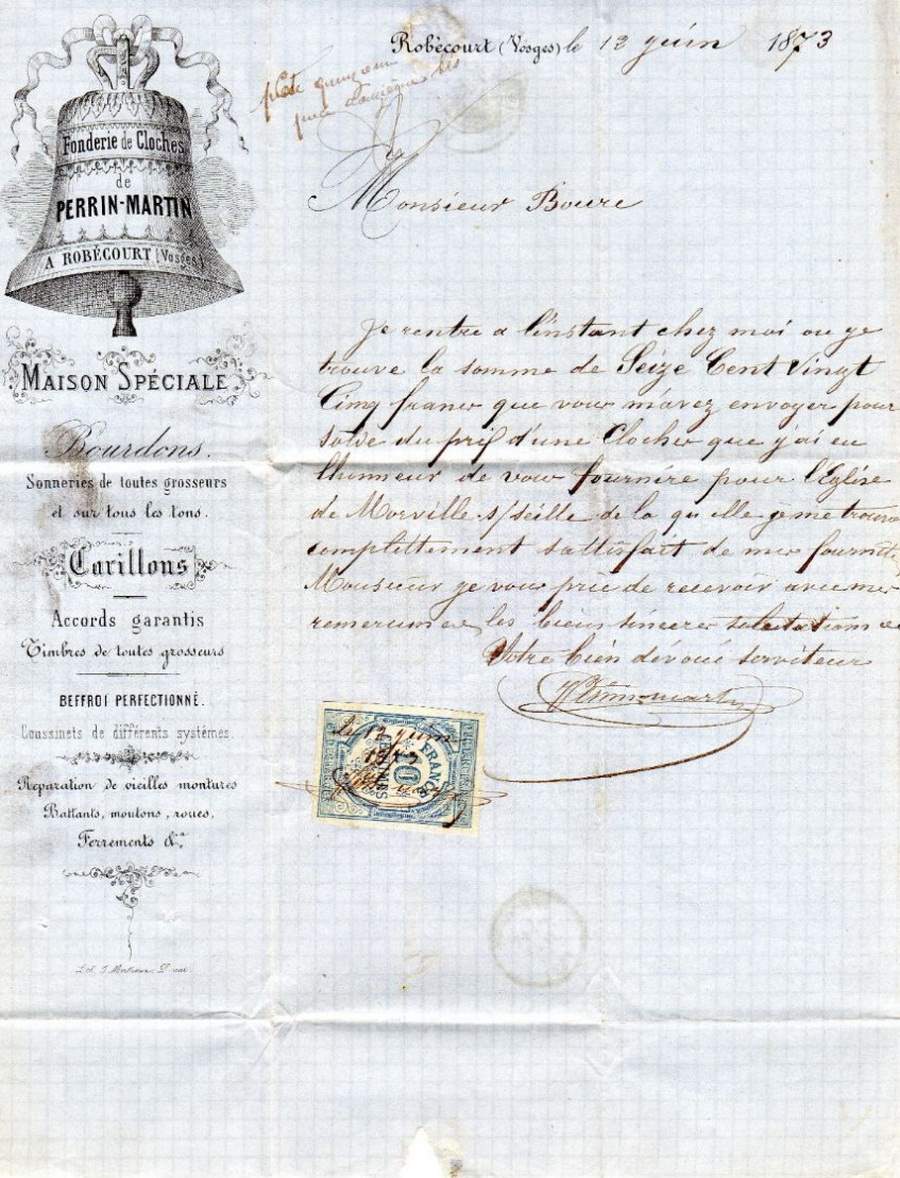 Fonderie de Cloches
de
PERRIN-MARTIN
A ROBÉCOURT (Vosges)
MAISON SPÉCIALE
Bourdons.
Sonneries de toutes grosseurs
et sur tous les tons.
Carillons
Accords garantis
Timbres de toutes grosseurs
BEFFROI PERFECTIONNÉ.
Coussinets de différents systèmes.
Réparation de vieilles montures
Battants, moutons, roues,
Ferrements &a.
Robécourt (Vosges) le 12 juin 1873
Monsieur Boure
Je rentre a l'instant chez moi ou je
trouve la somme de Seize Cent Vingt
Cinq francs que vous m'avez envoyer pour
solde du prix d'une Cloche que j'ai eu
l'hunneur de vous fournire pour l'Eglise
de Morville s/seille de la qu'elle je me trouve
complettement sattisfait de mes fournit.
Monsieur je vous prie de recevoir avec mes
les bien sincères
Votre bien dévoué serviteur
Perrin-martin
le 12 juin
1873
FRANCE
10